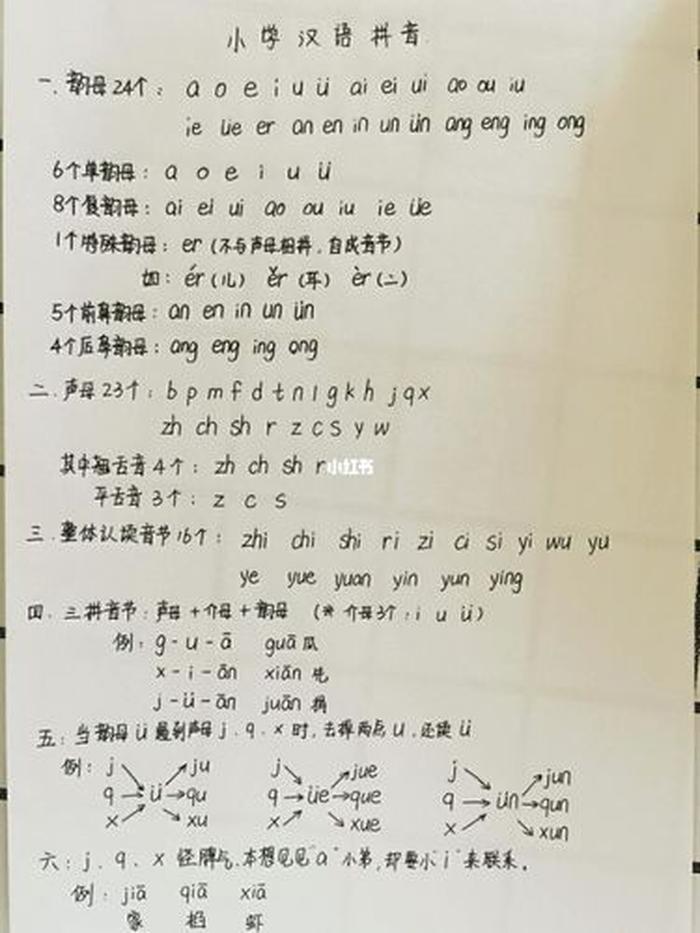 小学汉语拼音
一. 韵母24个: a o e i u ü ai ei ui ao ou iu
ie üe er an en in un ün ang eng ing ong
6个单韵母: a o e i u ü
8个复韵母: ai ei ui ao ou iu ie üe
1个特殊韵母: er (不与声母相拼, 自成音节)
如: ér(儿) ěr(耳) èr(二)
5个前鼻韵母: an en in un ün
4个后鼻韵母: ang eng ing ong
二. 声母23个: b p m f d t n l g k h j q x
zh ch sh r z c s y w
其中翘舌音4个: zh ch sh r
小红书
平舌音3个: z c s
三. 整体认读音节16个: zhi chi shi ri zi ci si yi wu yu
ye yue yuan yin yun ying
四. 三拼音节: 声母+介母+韵母 (* 介母3个: i u ü)
例: g-u-ā guā瓜
x-i-ān xiān先
j-ü-ān juān捐
五: 当韵母ü遇到声母j、q、x时, 去掉两点u, 还读ü
例: j q x → ü → ju qu xu
j q x → üe → jue que xue
j q x → ün → jun qun xun
六: j、q、x 本想见见"a"小弟, 却要小"i"来联系。
例: jiā qiā xiā
家 掐 虾